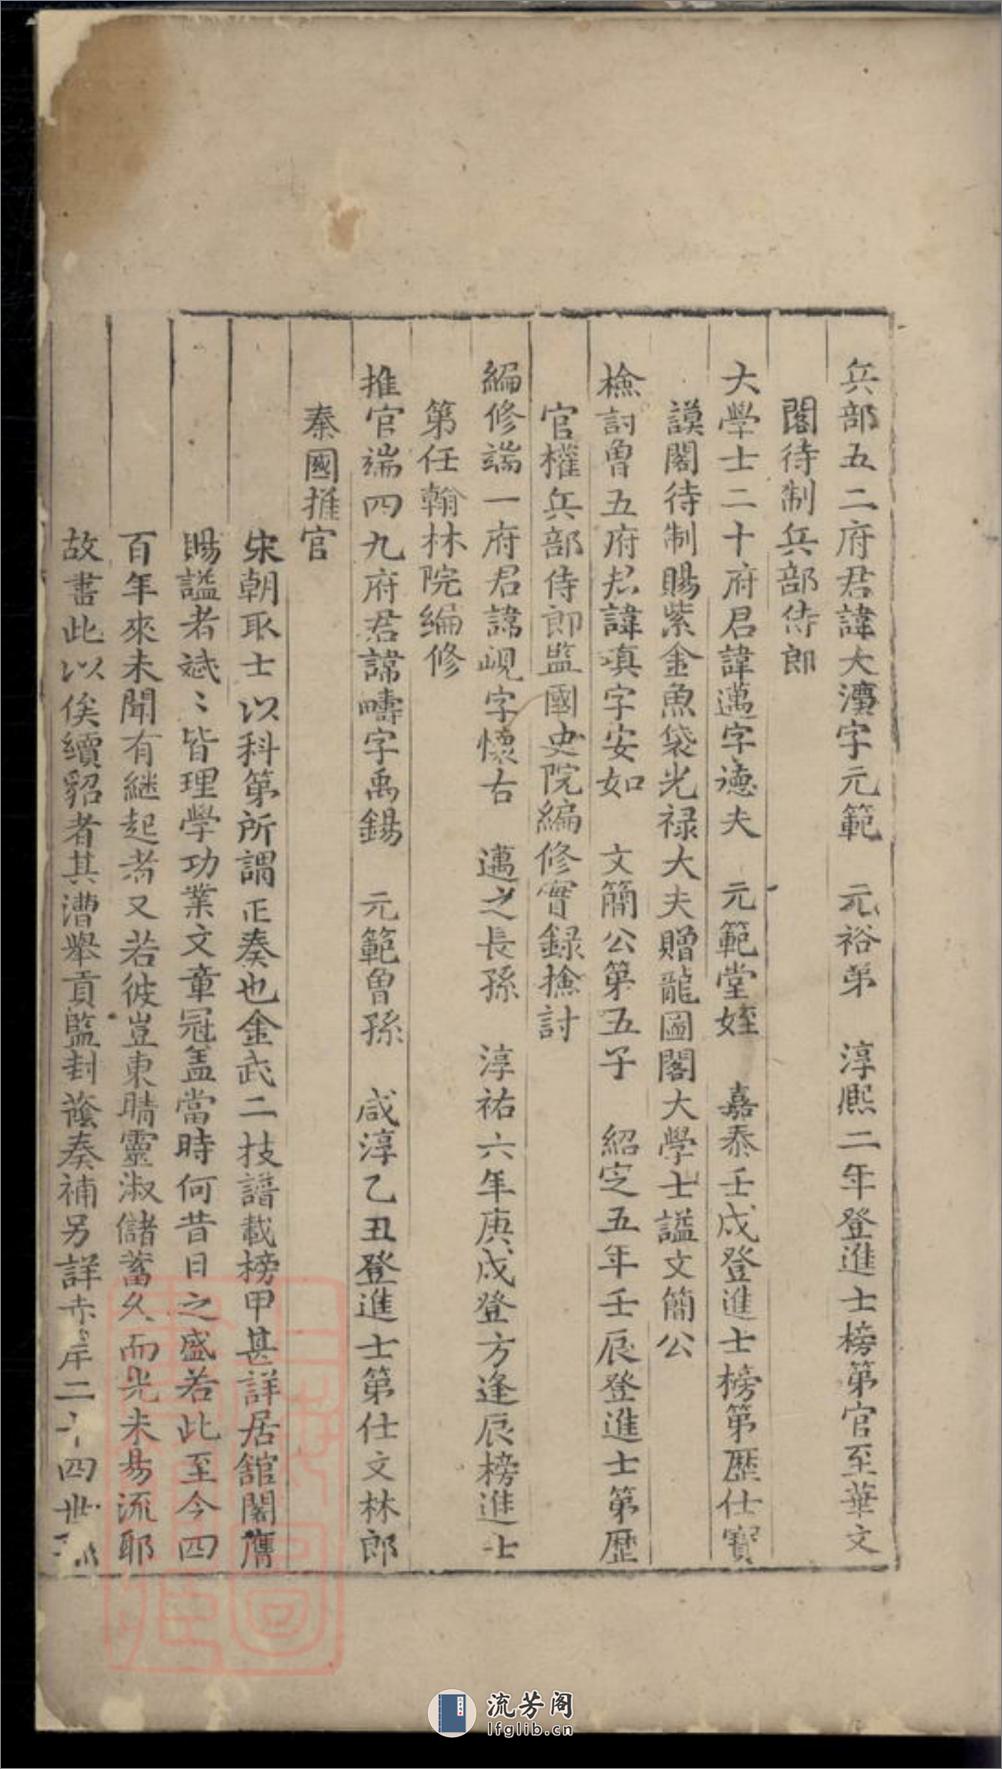 兵部五二府君諱大瀴字元範 元裕弟 淳熈二年登進士榜第官至華文
閣待制兵部侍郎
大學士二十府君諱邁字德夫 元範堂姪 嘉泰壬戌登進士榜第歷仕寶
謨閣待制賜紫金魚袋光禄大夫贈龍圖閣大學士謚文簡公
檢討曾五府君諱嗔字安如 文簡公第五子 紹定五年壬辰登進士第歷
官權兵部侍郎監國史院編修實録撿討
編修端一府君諱峴字懷古 邁之長孫 淳祐六年庚戌登方逢辰榜進士
第任翰林院編修
推官端四九府君諱疇字禹錫 元範曾孫 咸淳乙丑登進士第仕文林郎
秦國推官
宋朝取士以科第所謂正奏也金武二技譜載榜甲甚詳居舘閣膺
賜謚者斌〻皆理學功業文章冠盖當時何昔日之盛若此至今四
百年來未聞有継起者又若彼豈東晴靈淑儲蓄久而光未易流耶
故書此以俟續貂者其漕舉貢監封蔭奏補另詳赤岸二十四世
流芳阁
lfglib.cn